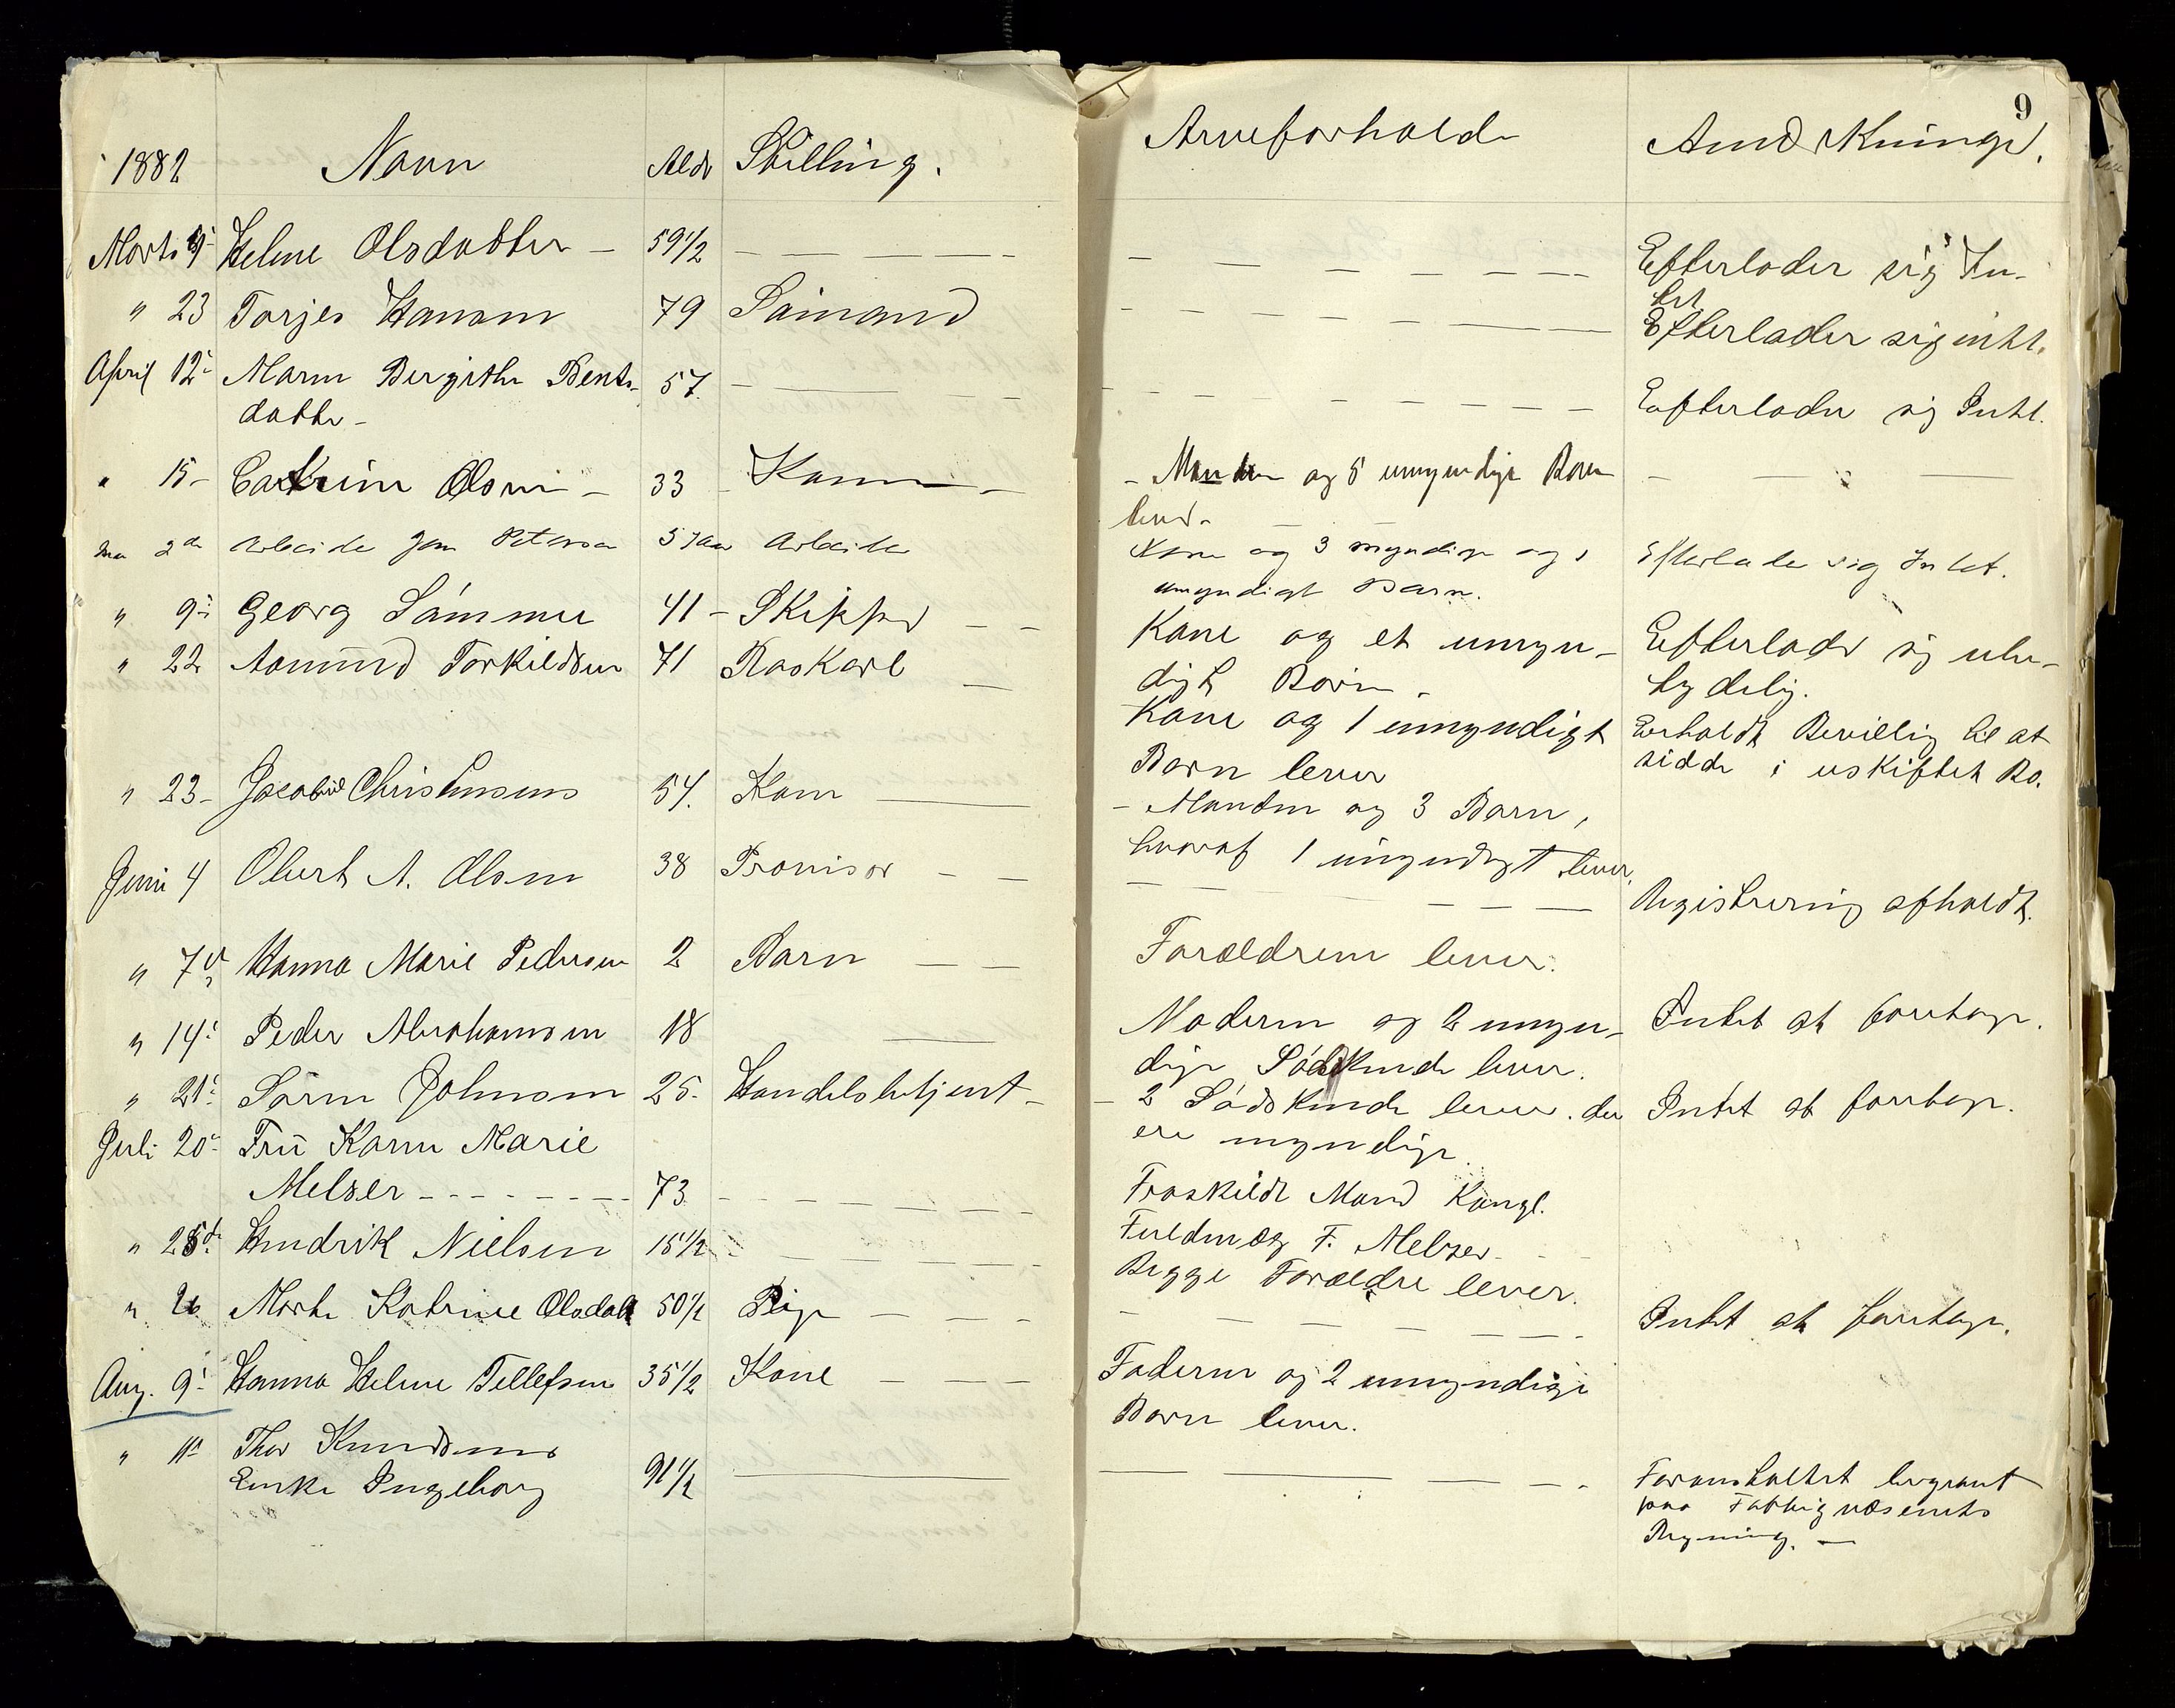 9
1882 Navn Aldr Stilling. Arveforhold Anmærkninger.
Marts 9 Helene Olsdatter — 59 1/2 — — — — Efterlader sig In-
tet
" 23 Torjes Hansen 79 Sømand — — — — Efterlader sig intet.
April 12 Maren Bergithe Bents- 57 — — — — Efterlader sig Intet.
datter —
" 15 — Catrine Olsen — 33 — Kone — — Manden og 5 umyndige Børn
lever —
Mai 2den Arbeider Jens Petersen 57 aar Arbeider Kone og 3 myndige og 1 Efterlader sig Intet.
umyndigt Barn.
" 9 Georg Sømme 41 — Skipper — — Kone og et umyn- Efterlader sig ube-
digt Barn. tydelig.
" 22 Aamund Torkildsen 71 Baskarl — Kone og 1 umyndigt Erholdt Bevillig til at
Barn lever sidde i uskiftet Bo.
" 23 — Jacobine Christensens 54. Kone — — Manden og 3 Børn,
hvoraf 1 umyndigt lever.
Juni 4 Olert A. Olsen 38 Provisor — — — — Registrering afholdt.
" 7de Hanna Marie Pedersen 2 Barn — — Forældrene lever.
" 14 Peder Abrahamsen 18 — Moderen og 2 umyn- Intet at foretage.
dige Sødskende lever.
" 21 Søren Johnsen 25. Handelsbetjent — — 2 Sødskende lever. der Intet at foretage.
ere myndige
Juli 20 Fru Karen Marie
Melzer — — — — 73 — — — Fraskildt Mand Kongl.
Fuldmæg F. Melzer —
" 25de Hendrik Nielsen 15 1/2 — — — Begge Forældre lever.
" 26 Marthe Katrine Olsdatt 50 1/2 Pige — — — — — Intet at foretage.
Aug. 9 Hanna Helene Tellefsen 35 1/2 Kone — — — Faderen og 2 umyndige
Børn lever.
" 11 Thor Knudsens
Enke Ingeborg 91 1/2 — — — — Foranstaltet begravet
paa Fattigvæsenets
Regning. —